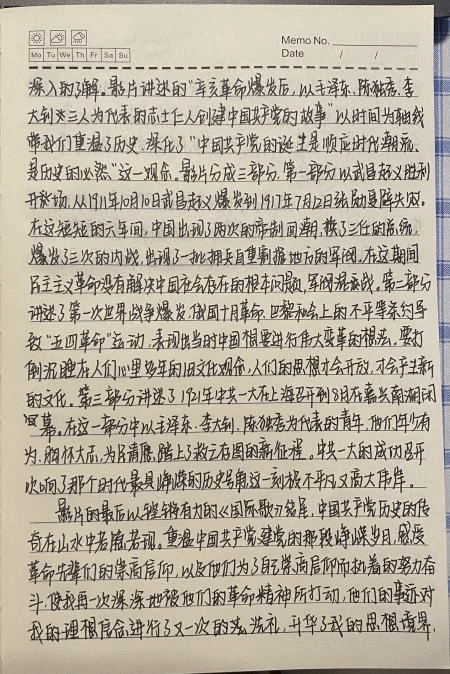 Memo No.
Mo Tu We Th Fr Sa Su
Date / /
深入的了解。影片讲述的“辛亥革命爆发后，以毛泽东、陈独秀、李
大钊三人为代表的志士仁人创建中国共产党的故事”以时间为轴线
带我们重温了历史，深化了“中国共产党的诞生是顺应时代潮流、
是历史的必然”这一观念。影片分成三部分，第一部分以武昌起义胜利
开场，从1911年10月10日武昌起义爆发到1917年7月12日张勋复辟失败。
在这短短的六年间，中国出现了两次的帝制回潮，换了三任的总统，
爆发了三次的内战，出现了一批拥兵自重割据地方的军阀。在这期间
民主主义革命没有解决中国社会存在的根本问题，军阀混战。第二部分
讲述了第一次世界战争爆发、俄国十月革命、巴黎和会上的不平等条约导
致“五四革命”运动，表现出当时中国想要进行伟大变革的想法，要打
倒沉睡在人们心里多年的旧文化观念，人们的思想才会开放，才会产生新
的文化。第三部分讲述了1921年中共一大在上海召开到8月在嘉兴南湖闭
幕。在这一部分中以毛泽东、李大钊、陈独秀为代表的青年，他们年少有
为、胸怀大志，为民请愿，踏上了救亡图的新征程。中共一大的成功召开
吹响了那个时代最具峥嵘的历史号角这一刻被不平凡又高大伟岸。
影片的最后以铿锵有力的《国际歌》结尾，中国共产党历史的传
奇在山水中若隐若现。重温中国共产党建党的那段峥嵘岁月，感受
革命先辈们的崇高信仰，以及他们为了自己崇高信仰而执着的努力奋
斗，使我再一次深深地被他们的革命精神所打动，他们的事迹对
我的理想信念进行了又一次的洗礼，升华了我的思想境界，